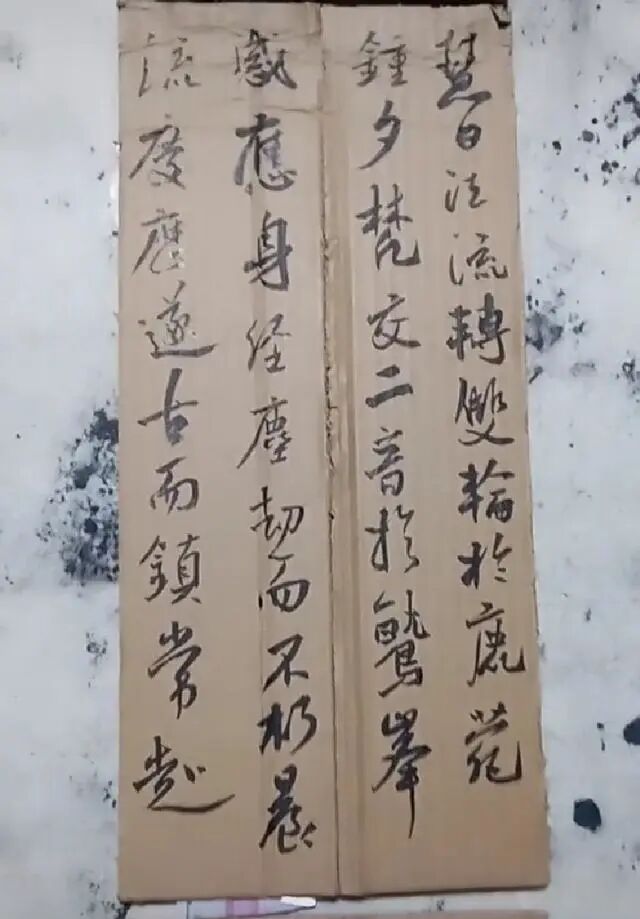 流慶歷遂古而鎮常赴
感應身経塵劫而不朽晨
鍾夕梵交二音於鷲峯
慧日法流轉雙輪於鹿苑